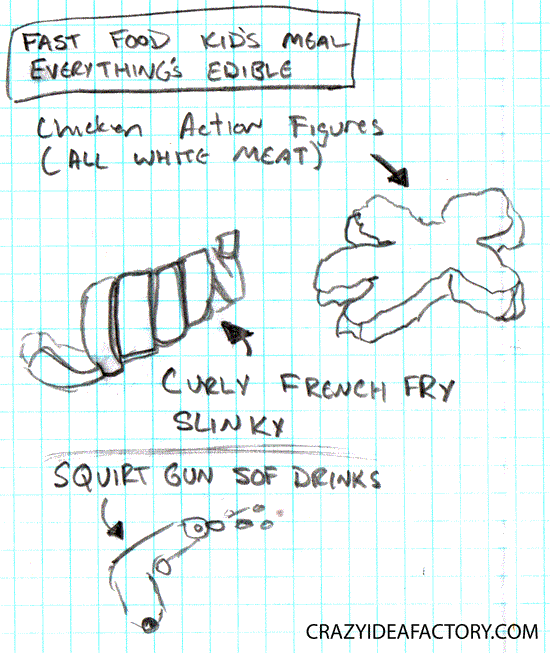 FAST FOOD KID'S MEAL
EVERYTHING'S EDIBLE
Chicken Action Figures
(ALL WHITE MEAT)
CURLY FRENCH FRY
SLINKY
SQUIRT GUN SOF DRINKS
CRAZYIDEAFACTORY.COM